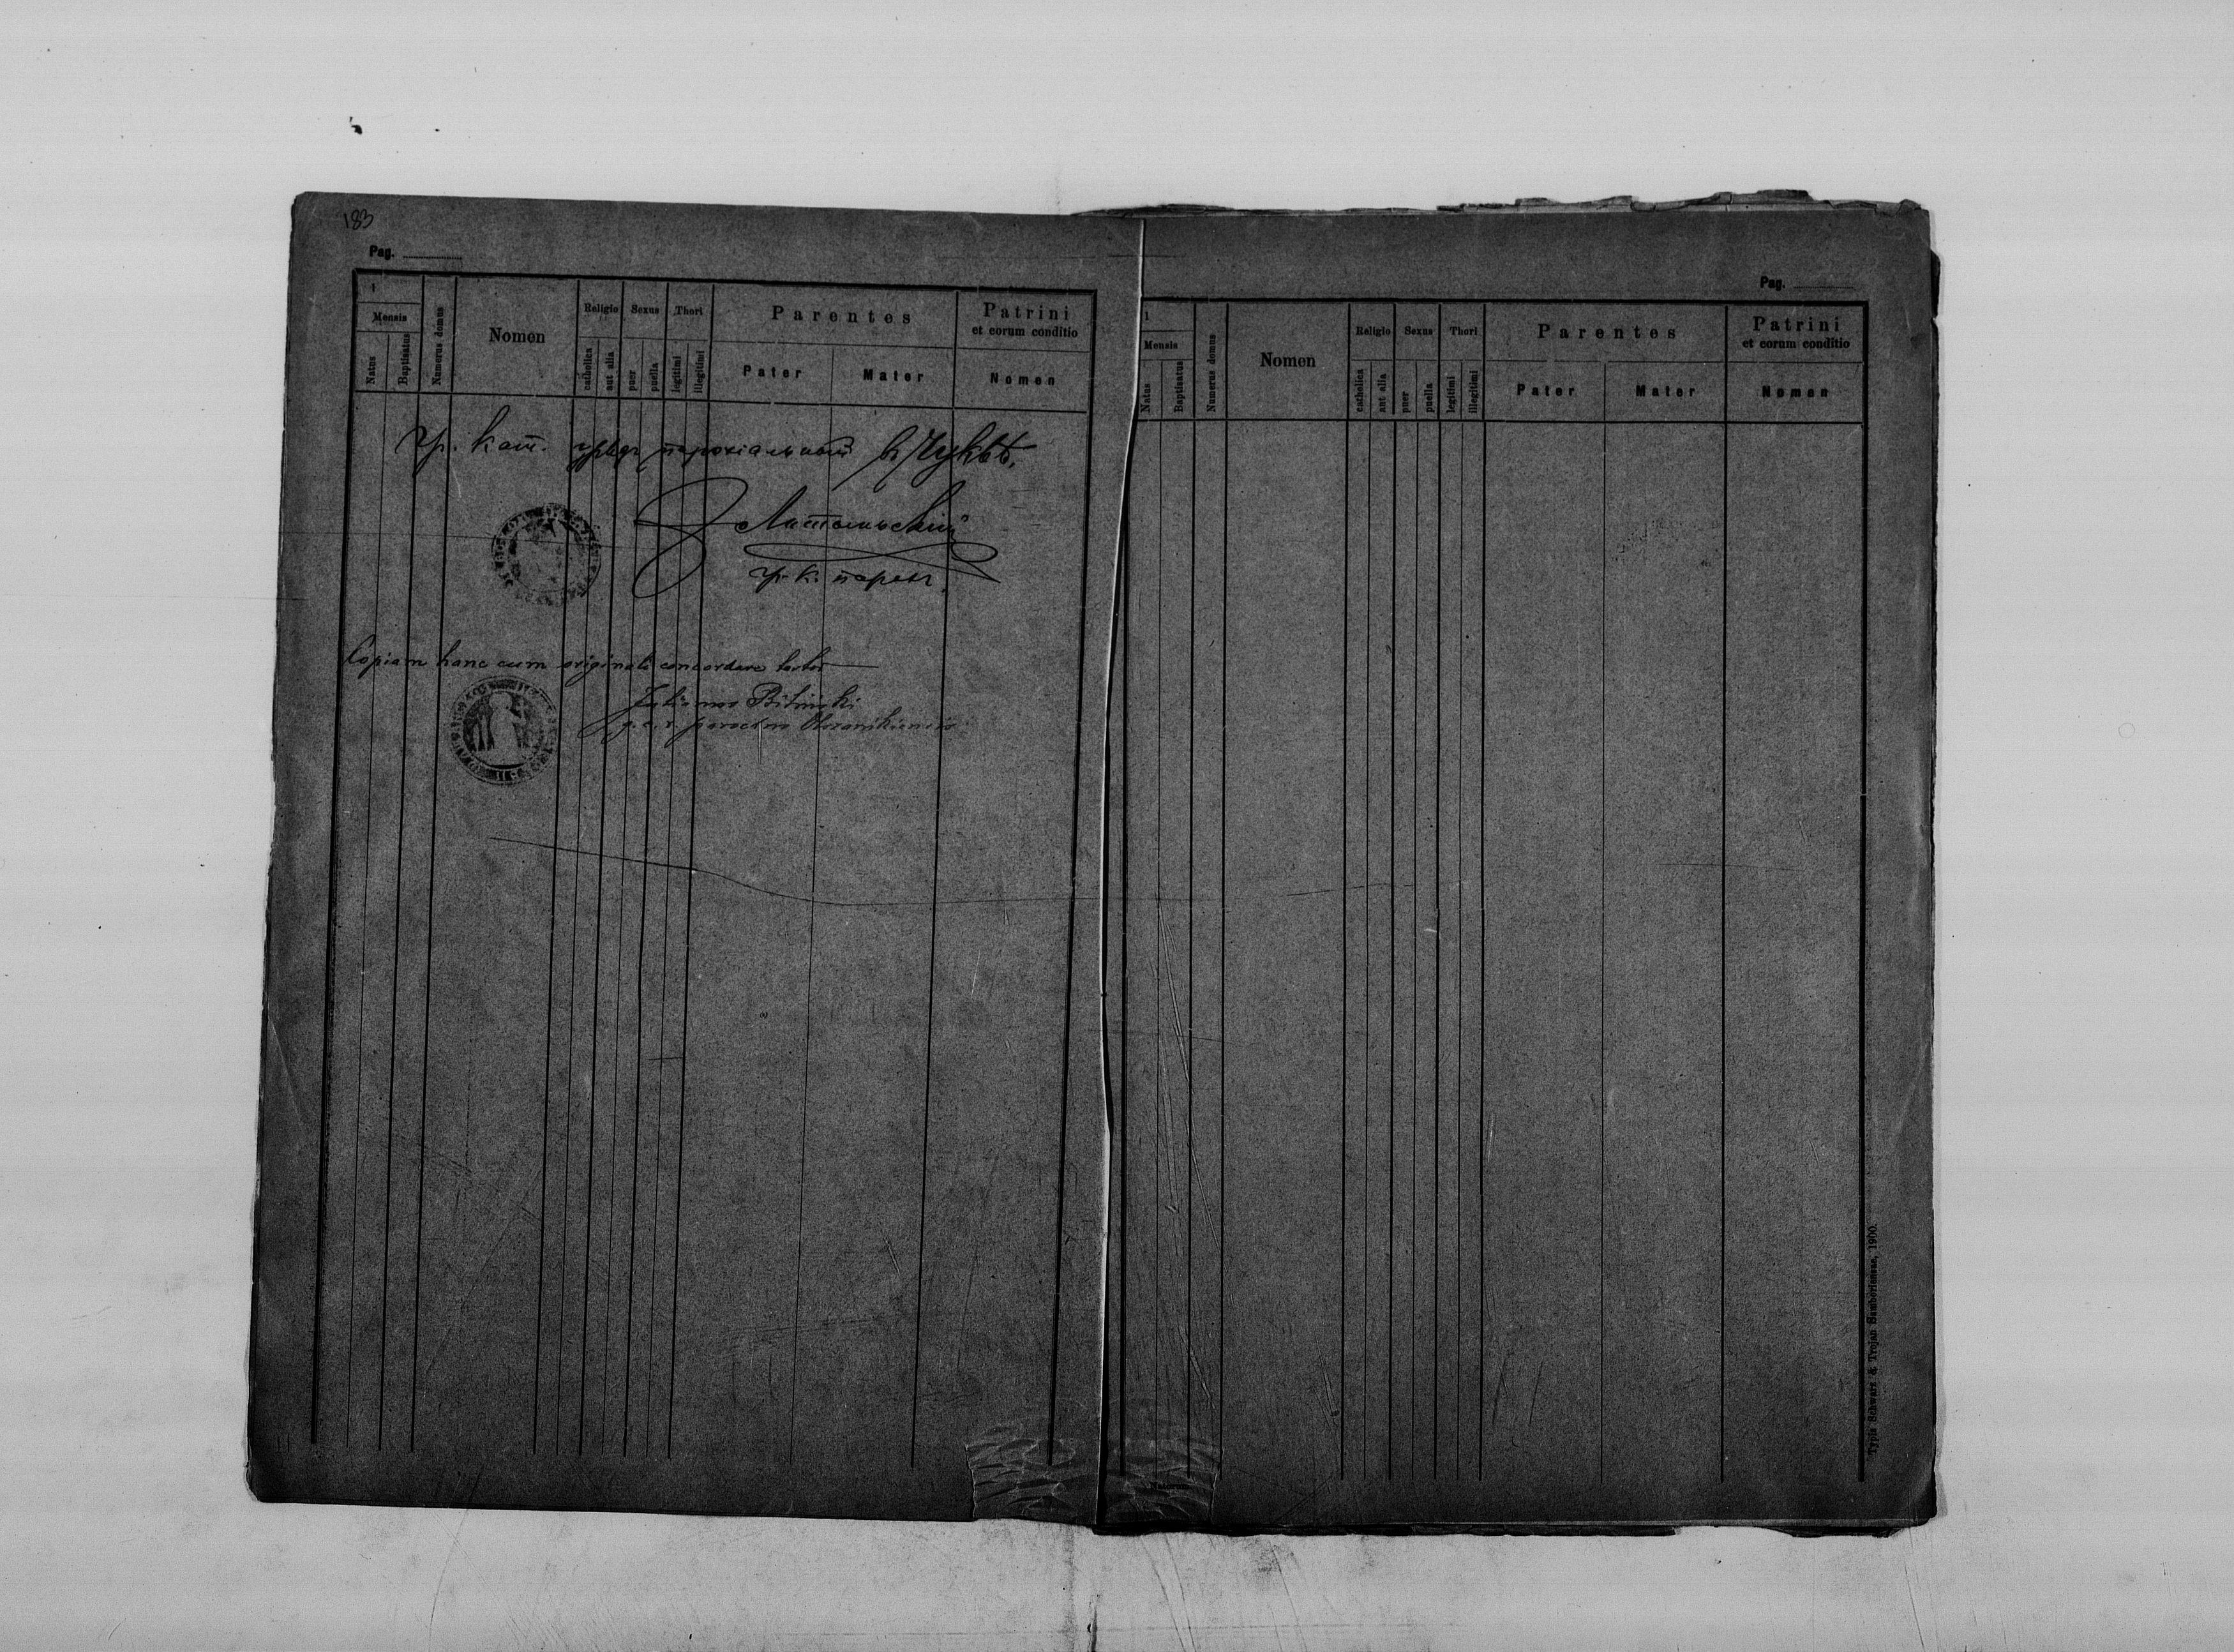 183
Pag.
1
Mensis
Natus
Baptisatus
Numerus domus
Nomen
Religio
catholica
aut alia
Sexus
puer
puella
Thori
legitimi
illegitimi
Parentes
Pater
Mater
Patrini
et eorum conditio
Nomen
Гр. кат. урядъ парохіальный
гр. к. парохъ.
Copiam hanc cum originali concordare testor
Julianus
g. r. c. parochus
Pag.
1
Mensis
Natus
Baptisatus
Numerus domus
Nomen
Religio
catholica
aut alia
Sexus
puer
puella
Thori
legitimi
illegitimi
Parentes
Pater
Mater
Patrini
et eorum conditio
Nomen
Typis Schwarz & Trojan Samboriensae, 1900.
Natorum